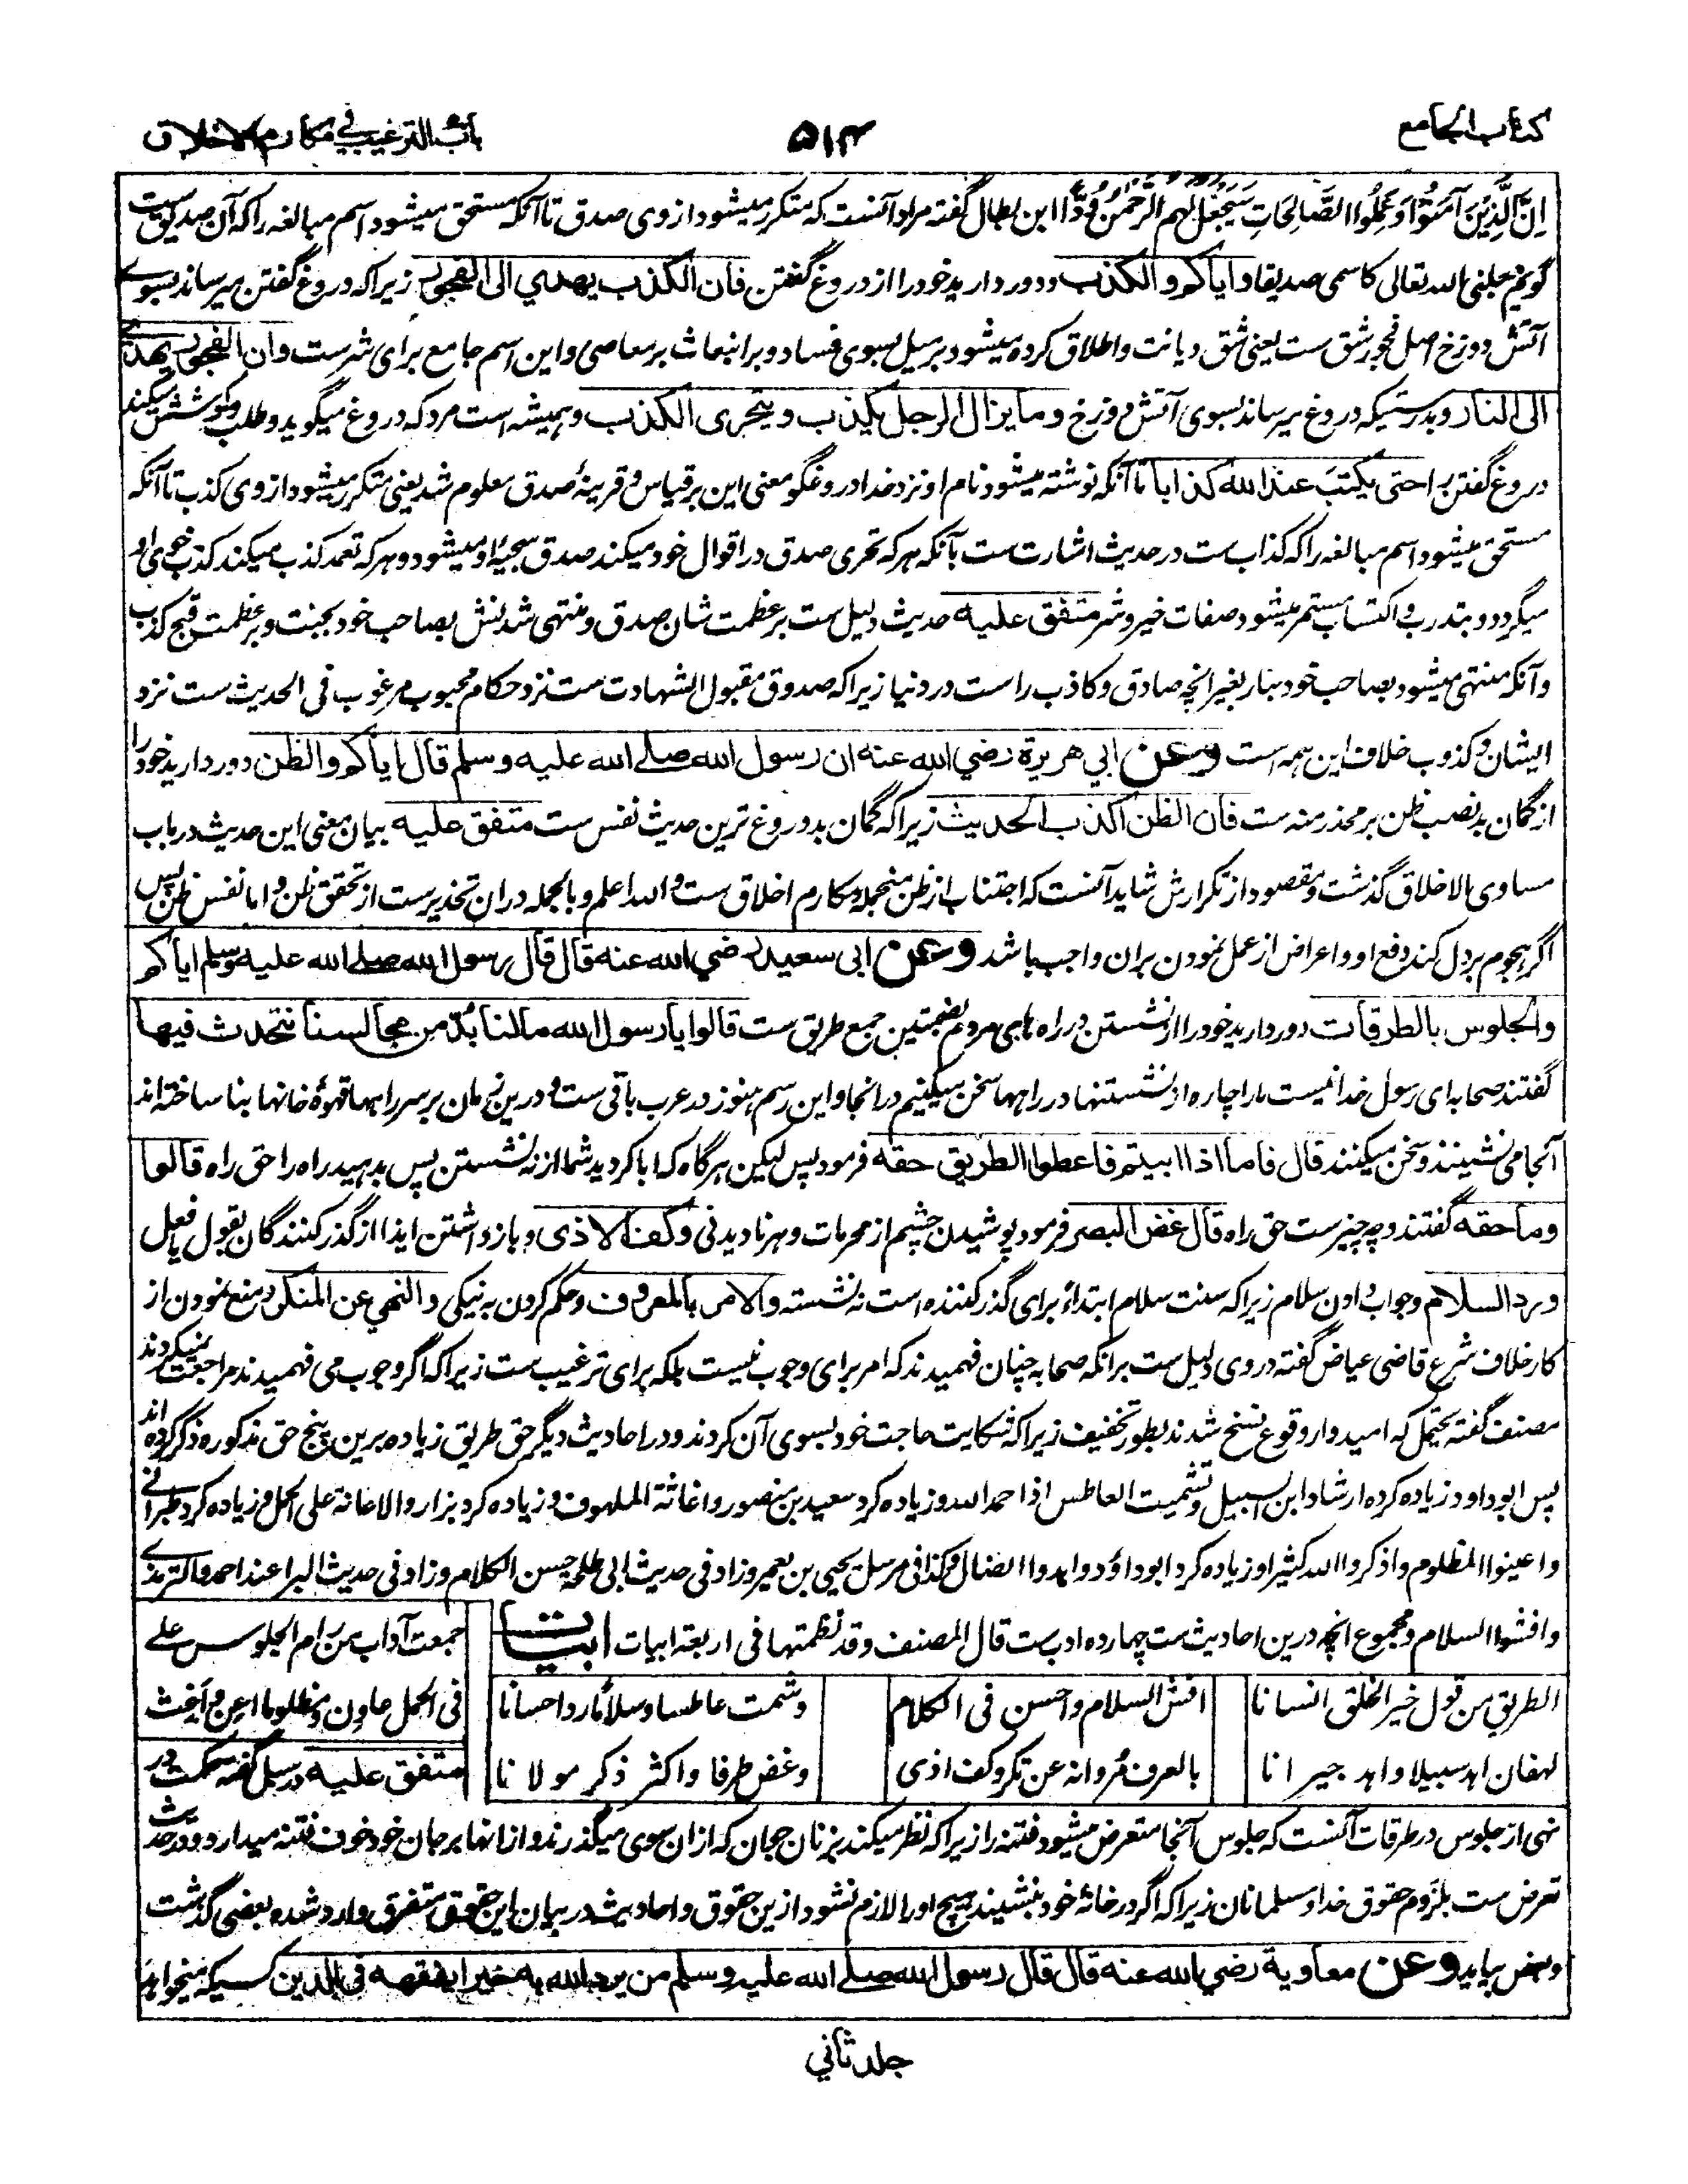 کتاب الجامع ۵۱۴ باب الترغیب فی مکارم الاخلاق
اِنَّ الَّذِیْنَ آمَنُوْا وَعَمِلُوا الصَّالِحَاتِ سَیَجْعَلُ لَہُمُ الرَّحْمٰنُ وُدًّا ابن بطال گفتہ مراد آنست کہ متکرر میشود از وی صدق تا آنکہ مستحق میشود اسم مبالغہ را کہ آن صدیق ست
گویم جعلنی اللہ تعالی کاسمی صدیقا وایاکم والکذب ودور دارید خود را از دروغ گفتن فان الکذب یھدي الی الفجور زیرا کہ دروغ گفتن میرساند بسوے
آتش دوزخ اصل فجور شق ست یعنی شق دیانت واطلاق کردہ میشود بر میل بسوی فساد وبر انبعاث بر معاصی واین اسم جامع برای شرست وان الفجور یھدے
الی النار وبدرستیکہ دروغ میرساند بسوی آتش دوزخ وما یزال الرجل یکذب ویتحری الکذب وہمیشہ است مرد کہ دروغ میگوید وطلب وکوشش میکند
دروغ گفتن را حتی یکتب عند اللہ کذابا تا آنکہ نوشتہ میشود نام او نزد خدا دروغگو معنی این بر قیاس وقرینۂ صدق معلوم شد یعنی متکرر میشود از وی کذب تا آنکہ
مستحق میشود اسم مبالغہ را کہ کذاب ست در حدیث اشارت ست بآنکہ ہر کہ تحری صدق در اقوال خود میکند صدق سجیۂ او میشود وہر کہ تعمد کذب میکند کذب خوی او
میگردد وبتدرب واکتساب مستمر میشود صفات خیر وشر متفق علیہ حدیث دلیل ست بر عظمت شان صدق ومنتہی شدنش بصاحب خود بجنت وبر عظمت قبح کذب
وآنکہ منتہی میشود بصاحب خود بنار بغیر انچہ صادق وکاذب راست در دنیا زیرا کہ صدوق مقبول الشہادت ست نزد حکام محبوب مرغوب فی الحدیث ست نزد
ایشان وکذوب خلاف این ہمہ است وعن ابي ھریرة رضي اللہ عنہ ان رسول اللہ صلے اللہ علیہ وسلم قال ایاکم والظن دور دارید خود را
از گمان بد نصب ظن بر محذر منہ ست فان الظن اکذب الحدیث زیرا کہ گمان بد دروغ ترین حدیث نفس ست متفق علیہ بیان معنی این حدیث در باب
مساوی الاخلاق گذشت ومقصود از تکرارش شاید آنست کہ اجتناب از ظن منجملہ مکارم اخلاق ست واللہ اعلم وبالجملہ دران تحذیرست از تحقق ظن واما نفس ظن پس
اگر ہجوم بر دل کند دفع او واعراض از عمل نمودن بران واجب باشد وعن ابی سعید رضي اللہ عنہ قال قال رسول اللہ صلے اللہ علیہ وسلم ایاکم
والجلوس بالطرقات دور دارید خود را از نشستن در راہ ہای مردم بضمتین جمع طریق ست قالوا یا رسول اللہ ما لنا بدّ من مجالسنا نتحدث فیھا
گفتند صحابہ ای رسول خدا نیست ما را چارہ از نشستنہا در راہہا سخن میکنیم در انجا واین رسم ہنوز در عرب باقی ست ودرین زمان بر سر راہہا قہوۂ خانہا بنا ساختہ اند
آنجا می نشینند وسخن میکنند قال فاما اذا ابیتم فاعطوا الطریق حقہ فرمود پس لیکن ہرگاہ کہ ابا کردید شما از نہ نشستن پس بدہید راہ را حق راہ قالوا
وما حقہ گفتند وچہ چیزست حق راہ قال غض البصر فرمود پوشیدن چشم از محرمات وہر نادیدنی وکف الاذی وباز داشتن ایذا از گذر کنندگان بقول یا فعل
ورد السلام وجواب دادن سلام زیرا کہ سنت سلام ابتداءً برای گذر کنندہ است نہ نشستہ والامر بالمعروف وحکم کردن بہ نیکی والنھي عن المنکر ومنع نمودن از
کار خلاف شرع قاضی عیاض گفتہ در وی دلیل ست برانکہ صحابہ چنان فہمیدند کہ امر برای وجوب نیست بلکہ برای ترغیب ست زیرا کہ اگر وجوب می فہمیدند مراجعت نمیکردند
مصنف گفتہ یحتمل کہ امیدوار وقوع نسخ شدند بطور تخفیف زیرا کہ شکایت حاجت خود بسوی آن کردند ودر احادیث دیگر حق طریق زیادہ برین پنج حق مذکورہ ذکر کردہ اند
پس ابو داود زیادہ کردہ ارشاد ابن السبیل وتشمیت العاطس اذا حمد اللہ وزیادہ کرد سعید بن منصور واغاثة الملہوف وزیادہ کرد بزار والاعانة علی الحمل وزیادہ کرد طبرانے
واعینوا المظلوم واذکروا اللہ کثیرا وزیادہ کرد ابوداؤد واہدوا الضال وکذا فی مرسل یحیی بن یعمر وزاد فی حدیث ابی طلحة حسن الکلام وزاد فی حدیث البرا عند احمد والترمذے
وافشوا السلام ومجموع انچہ درین احادیث ست چہاردہ ادب ست قال المصنف وقد نظمتہا فی اربعة ابیات ابیات جمعت آداب من رام الجلوس علے
الطریق من قول خیر الخلق انسانا افش السلام واحسن فی الکلام وشمت عاطسا وسلاما رد احسانا فی الحمل عاون ومظلوما اعن واَغِث
لہفان اہد سبیلا واہد جیرانا بالعرف مُر وانہ عن نکر وکف اذی وغض طرفا واکثر ذکر مولانا متفق علیہ در سبل گفتہ حکمت در
نہی از جلوس در طرقات آنست کہ جلوس آنجا متعرض میشود فتنہ را زیرا کہ نظر میکند بزنان جوان کہ ازان سوی میگذرند وازانہا بر جان خود خوف فتنہ میدارد ودر حدیث
تعرض ست بلزوم حقوق خدا ومسلمانان زیرا کہ اگر در خانۂ خود بنشیند ہیچ او را لازم نشود ازین حقوق واحادیث در بیان این حقوق متفرق وارد شدہ بعضی گذشت
وبعض بیاید وعن معاویة رضي اللہ عنہ قال قال رسول اللہ صلے اللہ علیہ وسلم من یرد اللہ بہ خیرا یفقھہ فی الدین کسیکہ میخواہد
جلد ثاني